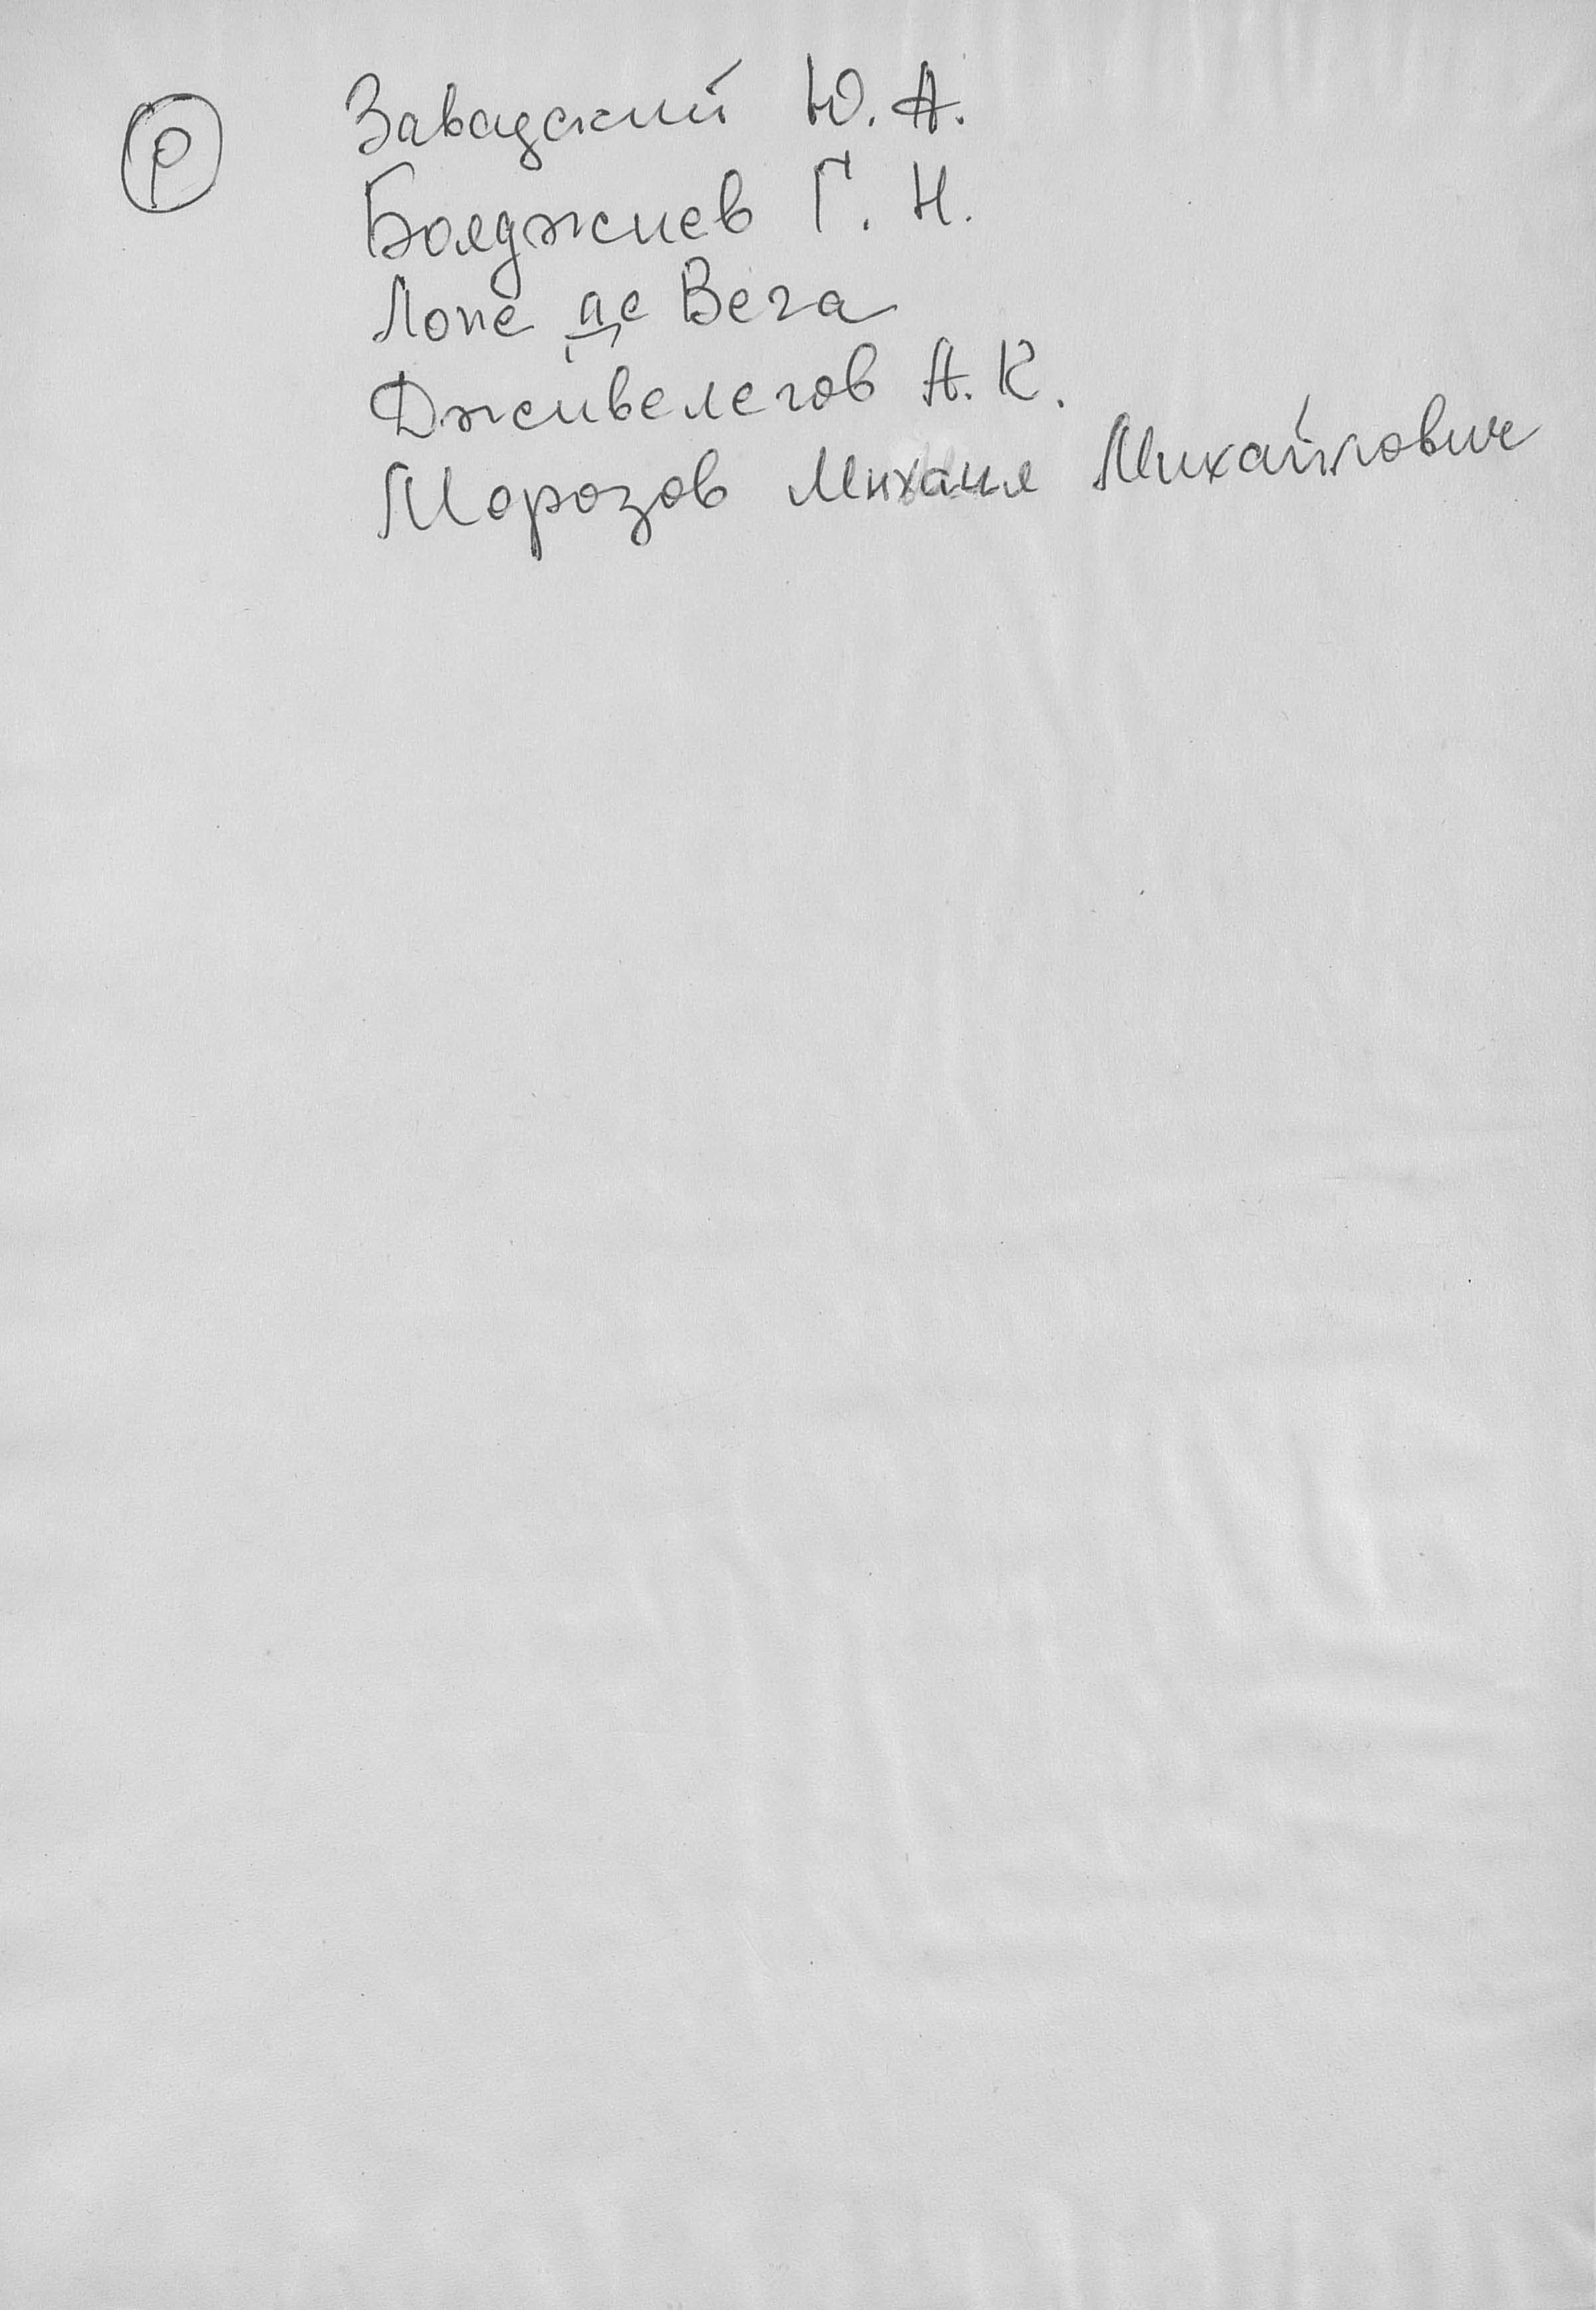 Р Завадский Ю. А.
Бояджиев Г. Н.
Лопе де Вега
Дживелегов А. К.
Морозов Михаил Михайлович